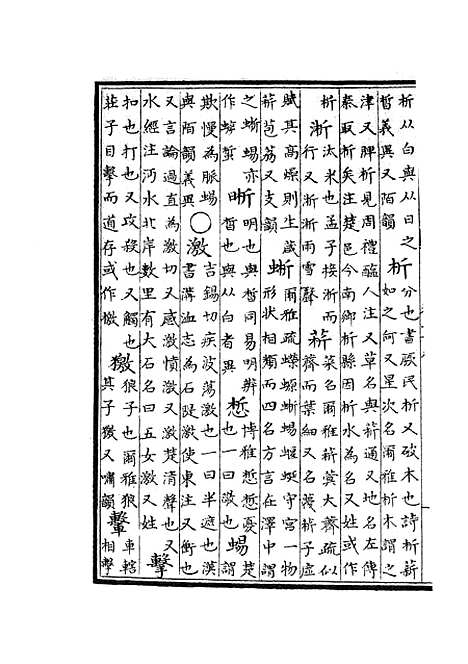 析从白與从日之
晳義異又陌韻
析
分也書厥民析又破木也詩析薪
如之何又星次名爾雅析木謂之
津又脾析見周禮醢人注又草名與菥通又地名左傳
秦取析矣注楚邑今南鄉析縣因析水為名又姓或作
㭊
淅
汰米也孟子接淅而
行又淅淅雨雪聲
菥
菜名爾雅菥蓂大薺疏似
薺而葉細又名蔑菥子虛
賦其高燥則生葴
菥苞荔又支韻
蜥
爾雅疏蠑螈蜥蜴蝘蜓守宮一物
形狀相類而四名方言在澤中謂
之蜥蜴亦
作
晰
明也與晳同易明辨
晳也與从白者異
惁
博雅惁惁憂
也一曰激也
蜴
楚
謂
欺慢為脈蜴
與陌韻義異
○
激
吉錫切疾波蕩激也一曰半遮也漢
書溝洫志為石隄激使東注又衝也
又言論過直為激切又感激憤激又激楚清聲也又
水經注沔水北岸數里有大石名曰五女激又姓
擊
扣也打也又攻殺也又觸也
莊子目擊而道存或作撽
獥
狼子也爾雅狼
其子獥又嘯韻
轚
車轄
相擊